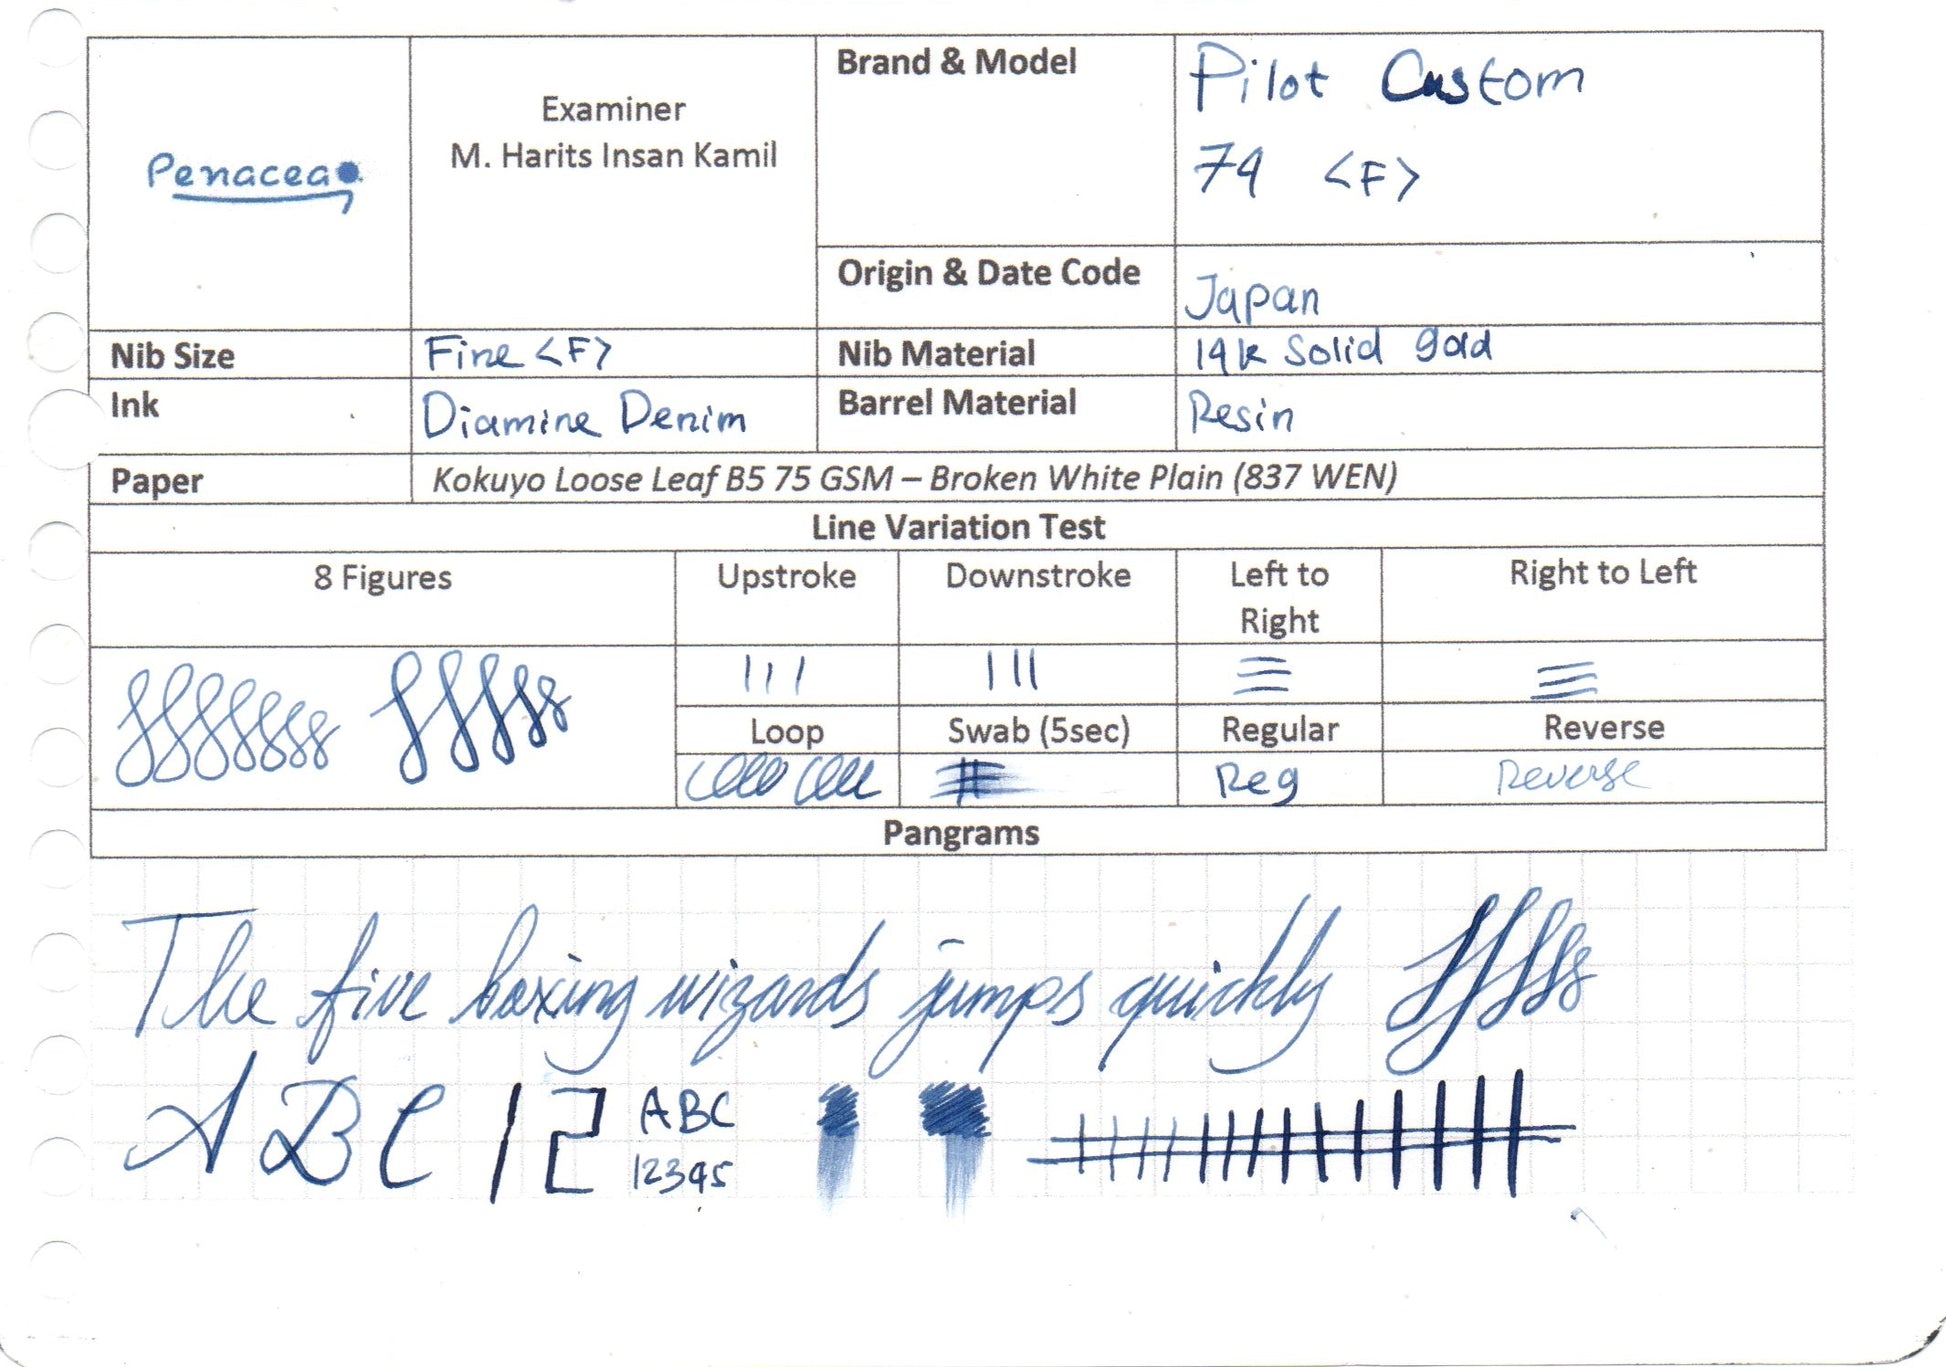 Penacea
Examiner
M. Harits Insan Kamil
Brand & Model
Pilot Custom
74 <F>
Origin & Date Code
Japan
Nib Size
Fine <F>
Nib Material
14k Solid gold
Ink
Diamine Denim
Barrel Material
Resin
Paper
Kokuyo Loose Leaf B5 75 GSM – Broken White Plain (837 WEN)
Line Variation Test
8 Figures
Upstroke
Downstroke
Left to
Right
Right to Left
Loop
Swab (5sec)
Regular
Reverse
Reg
Reverse
Pangrams
The five boxing wizards jumps quickly
ABC 12 ABC
12345